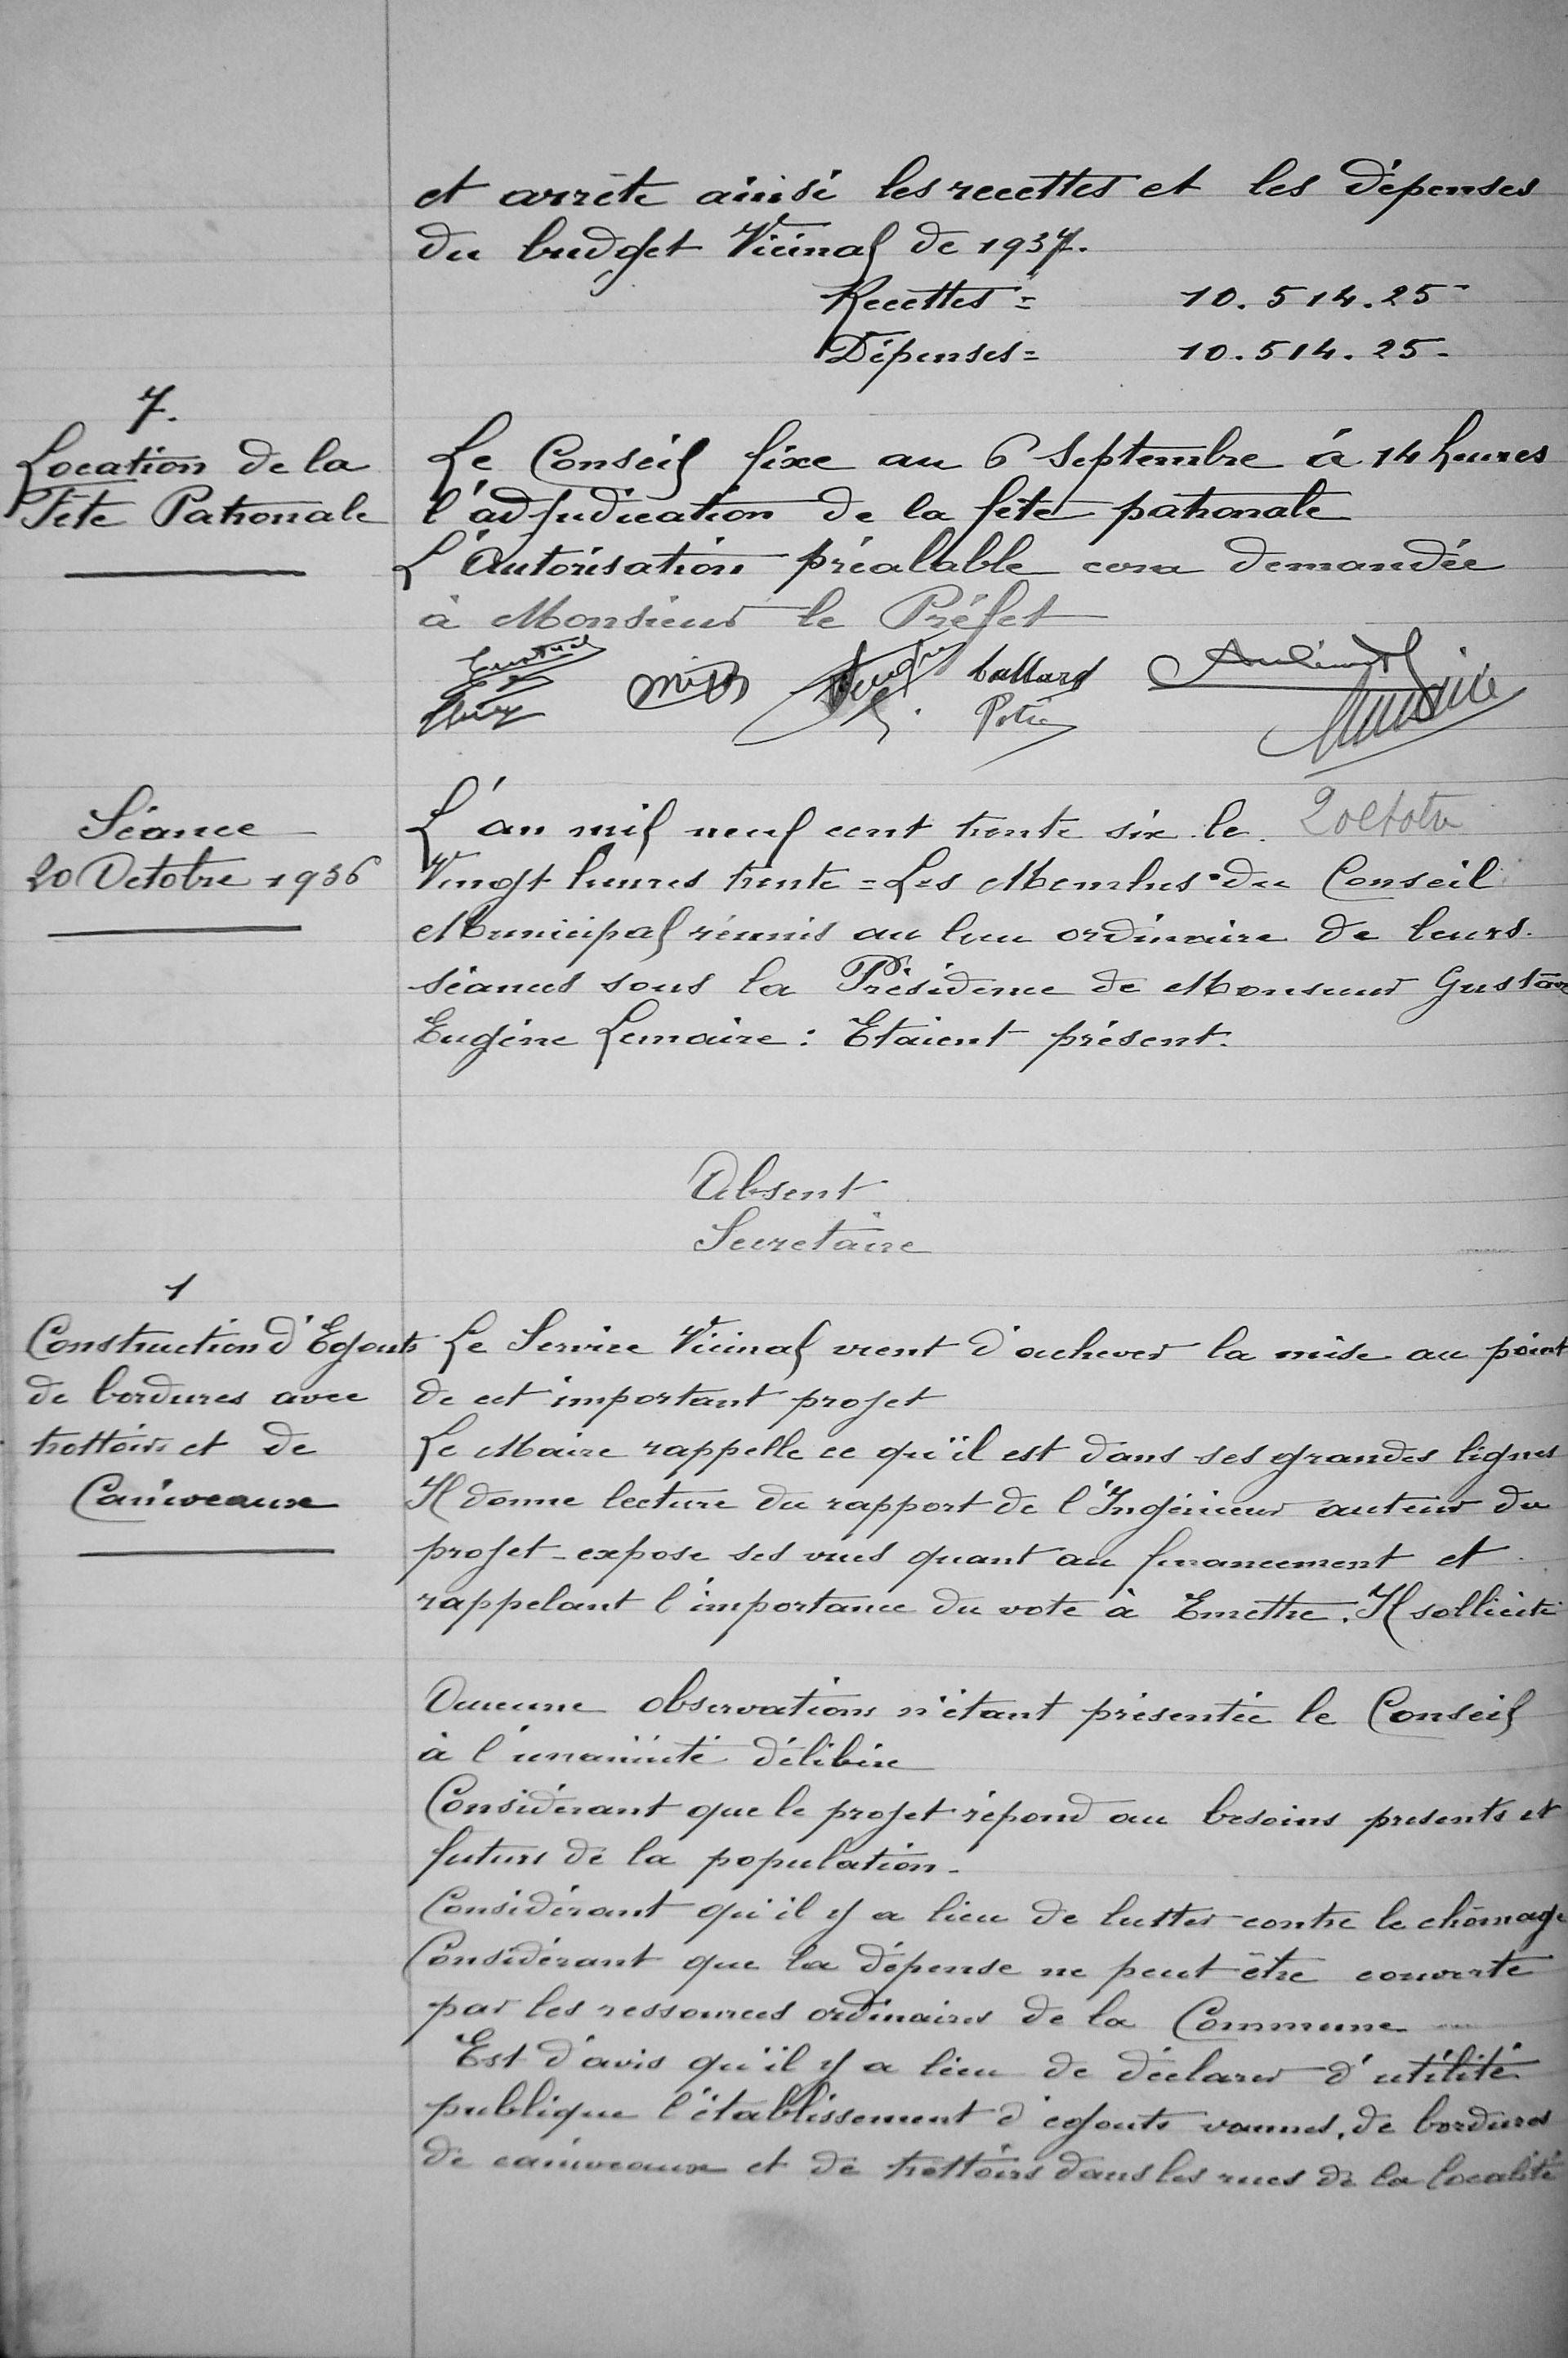 et arrête ainsi les recettes et les dépenses
du budget Vicinal de 1937.
Recettes = 10.514.25-
Dépenses = 10.514.25-
7.
Location de la
Fête Patronale
Le Conseil fixe au 6 Septembre à 14 heures
l'adjudication de la fête patronale
L'Autorisation préalable sera demandée
à Monsieur le Préfet
Callard
Potié
Séance
20 Octobre 1936
L'an mil neuf cent trente six le 20 Octobre
Vingt heures trente = Les Membres du Conseil
Municipal réunis au lieu ordinaire de leurs
séances sous la Présidence de Monsieur Gustave
Eugène Lemaire : Etaient présent.
Absent
Secretaire
1
Construction d'Egouts
de bordures avec
trottoirs et de
Caniveaux
Le Service Vicinal vient d'achever la mise au point
de cet important projet
Le Maire rappelle ce qu'il est dans ses grandes lignes
Il donne lecture du rapport de l'Ingénieur auteur du
projet - expose ses vues quant au financement et
rappelant l'importance du vote à Emettre. Il sollicite
Aucune observations n'étant présentée le Conseil
à l'unanimité délibère
Considérant que le projet répond au besoins presents et
futurs de la population.
Considérant qu'il y a lieu de lutter contre le chômage
Considérant que la dépense ne peut être couverte
par les ressources ordinaires de la Commune
Est d'avis qu'il y a lieu de déclarer d'utilité
publique l'établissement d'egouts vannes, de bordures
de caniveaux et de trottoirs dans les rues de la localité